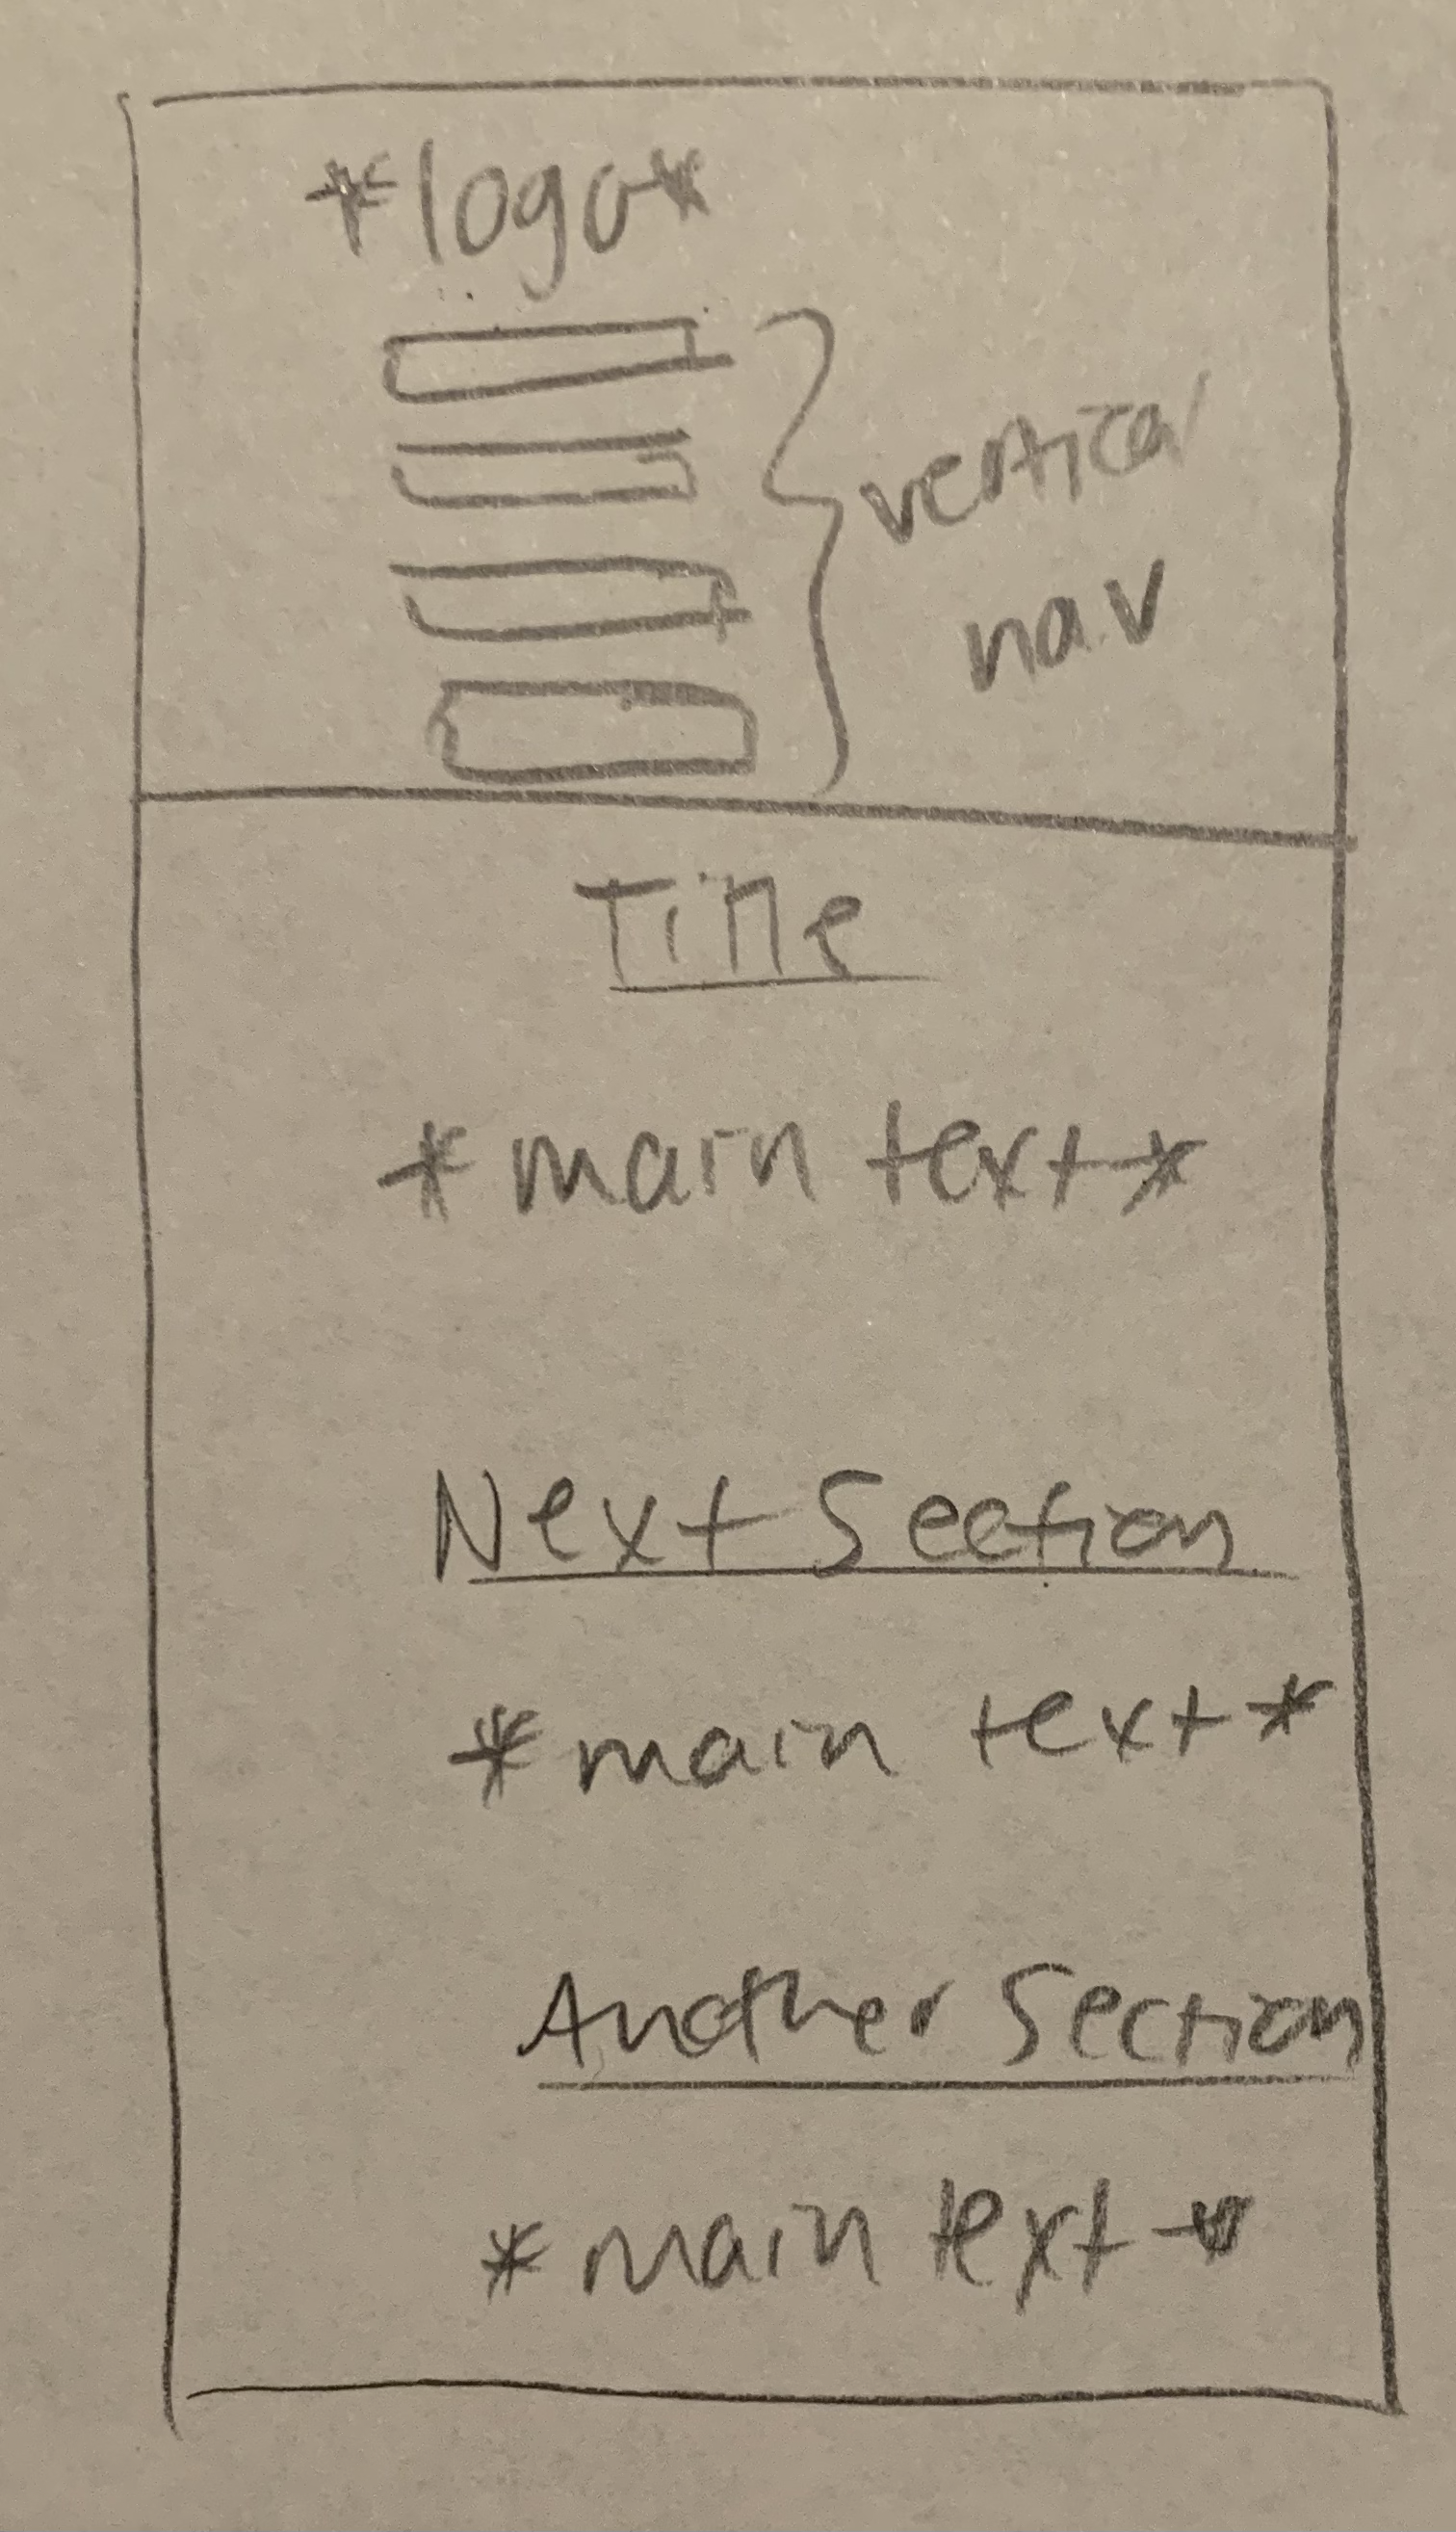 *logo*
vertical
nav
Title
*main text*
Next Section
*main text*
Another Section
*main text*